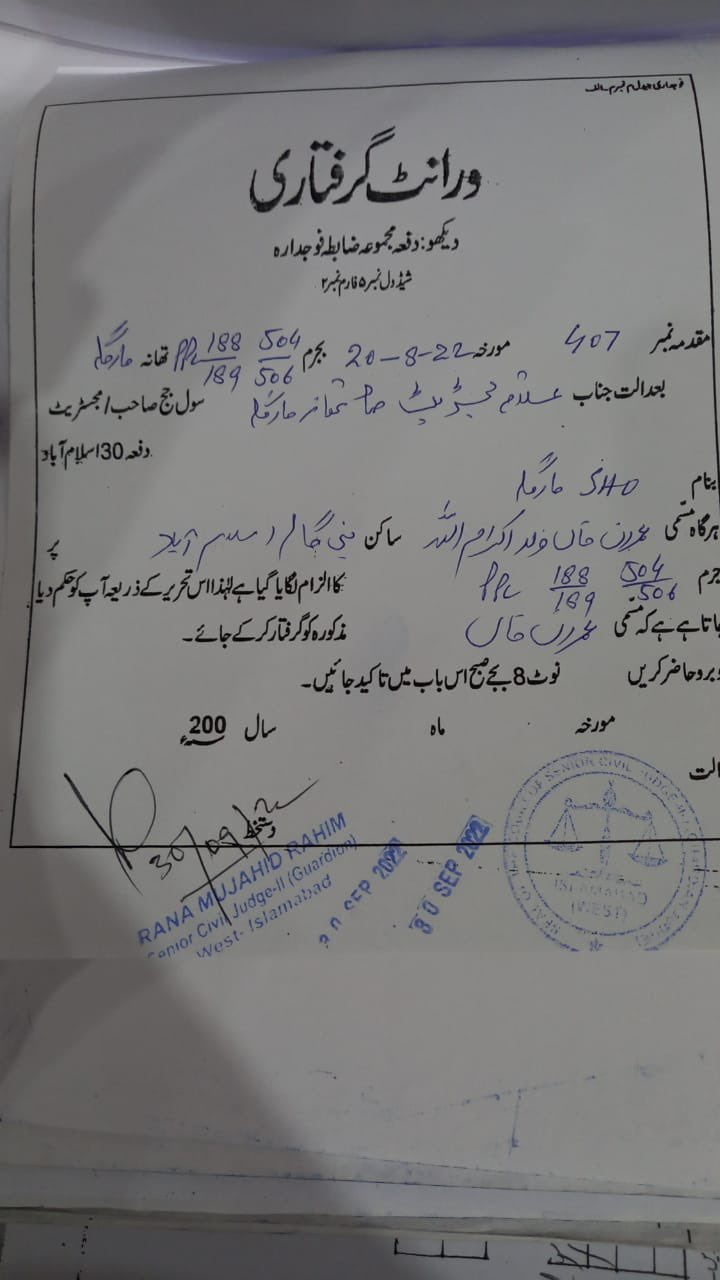 ورانٹ گرفتاری
دیکھو: دفعہ مجموعہ ضابطہ فوجدارہ
شیڈول نمبر ۵ فارم نمبر ۲
مقدمہ نمبر 407 مورخہ 20-8-22 بجرم 504/506 188/189 PPC تھانہ مارگلہ
بعدالت جناب علاقہ مجسٹریٹ صاحب تھانہ مارگلہ سول جج صاحب / مجسٹریٹ
دفعہ 30 اسلام آباد
بنام SHO مارگلہ
ہرگاہ مسمّی عمران خان ولد اکرام اللہ ساکن بنی گالہ اسلام آباد پر
جرم 504/506 188/189 PPC کا الزام لگایا گیا ہے لہٰذا اس تحریر کے ذریعہ آپ کو حکم دیا
جاتا ہے ہے کہ مسمّی عمران خان مذکورہ کو گرفتار کر کے جائے۔
وبرو حاضر کریں نوٹ 8 بجے صبح اس باب میں تاکید جائیں۔
مورخہ ماہ سال 200ء
الت
دستخط
30/09/22
RANA MUJAHID RAHIM
Senior Civil Judge-II (Guardian)
West- Islamabad
30 SEP 2022
30 SEP 2022
ISLAMABAD
(WEST)